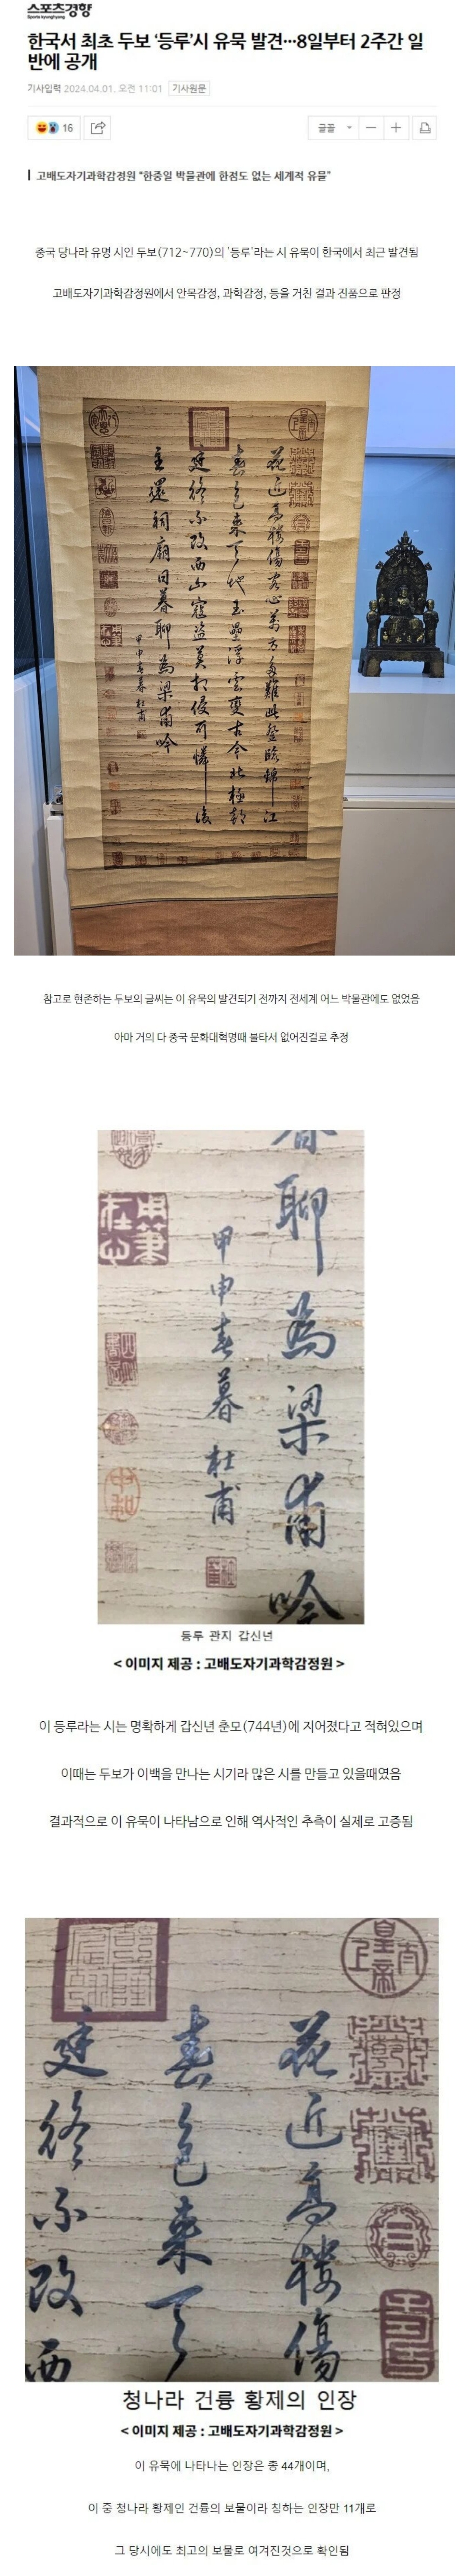 스포츠경향
Sports kyunghyang
한국서 최초 두보 ‘등루’시 유묵 발견…8일부터 2주간 일
반에 공개
기사입력 2024.04.01. 오전 11:01 기사원문
16
글꼴
고배도자기과학감정원 “한중일 박물관에 한점도 없는 세계적 유물”
중국 당나라 유명 시인 두보(712~770)의 '등루'라는 시 유묵이 한국에서 최근 발견됨
고배도자기과학감정원에서 안목감정, 과학감정, 등을 거친 결과 진품으로 판정
花近高樓傷客心萬方多難此登臨錦江
春色來天地玉壘浮雲變古今北極朝
廷終不改西山寇盜莫相侵可憐後
主還祠廟日暮聊為梁甫吟
甲申春暮杜甫
참고로 현존하는 두보의 글씨는 이 유묵의 발견되기 전까지 전세계 어느 박물관에도 없었음
아마 거의 다 중국 문화대혁명때 불타서 없어진걸로 추정
聊為梁甫吟
甲申春暮杜甫
등루 관지 갑신년
< 이미지 제공 : 고배도자기과학감정원 >
이 등루라는 시는 명확하게 갑신년 춘모(744년)에 지어졌다고 적혀있으며
이때는 두보가 이백을 만나는 시기라 많은 시를 만들고 있을때였음
결과적으로 이 유묵이 나타남으로 인해 역사적인 추측이 실제로 고증됨
花近高樓傷
春色來天
廷終不改西
청나라 건륭 황제의 인장
< 이미지 제공 : 고배도자기과학감정원 >
이 유묵에 나타나는 인장은 총 44개이며,
이 중 청나라 황제인 건륭의 보물이라 칭하는 인장만 11개로
그 당시에도 최고의 보물로 여겨진것으로 확인됨